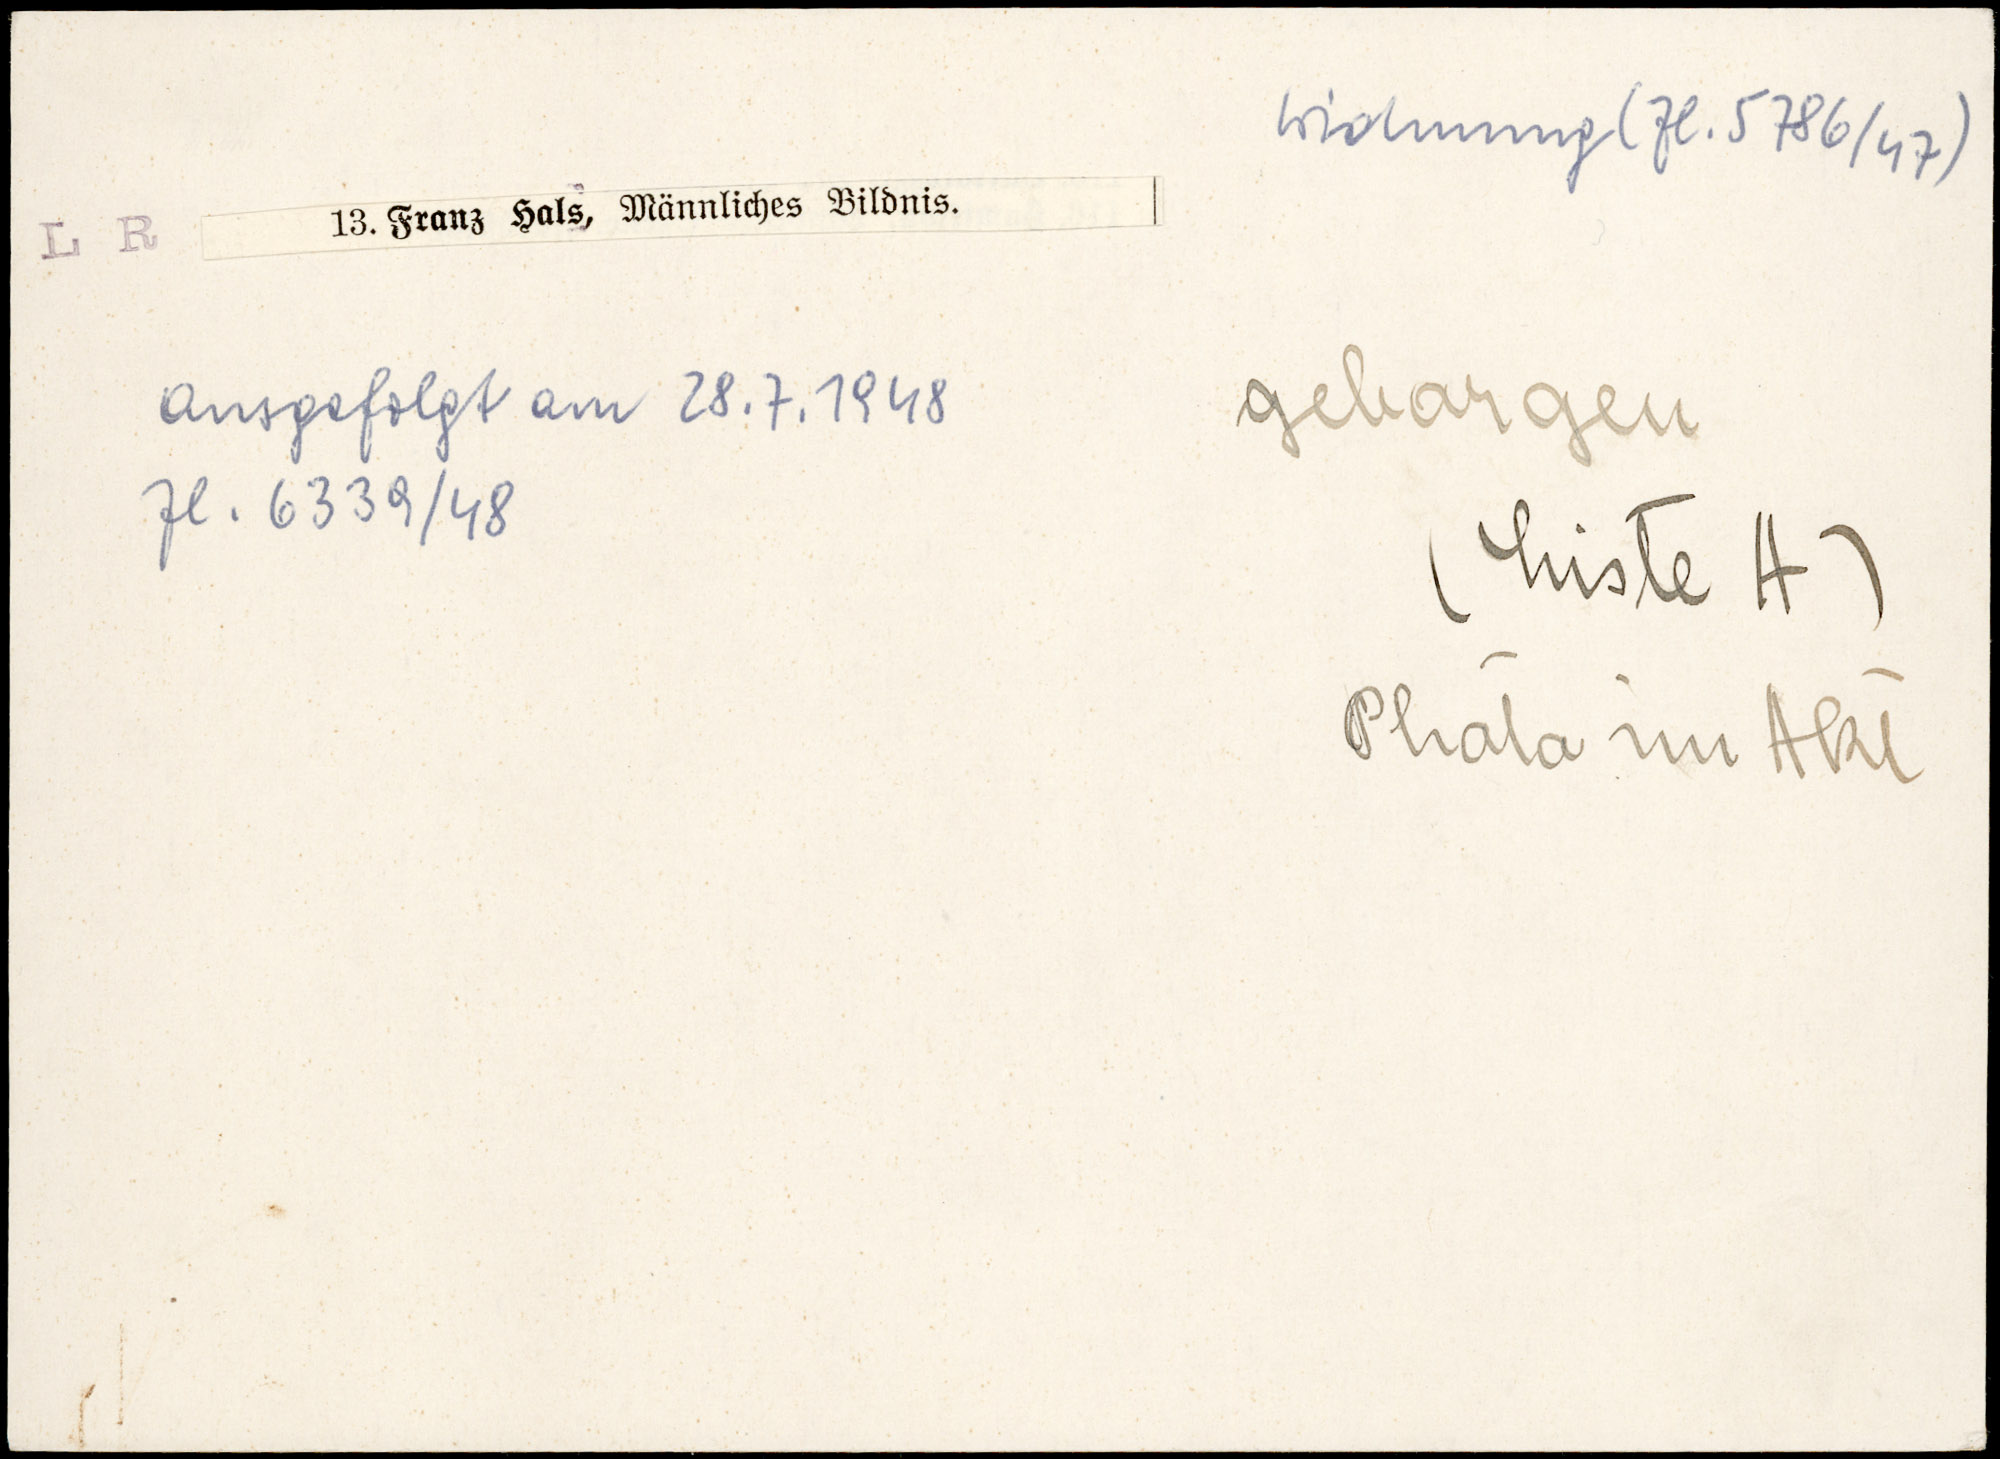 Widmung (Zl. 5786/47)
L R 13. Franz Hals, Männliches Bildnis.
ausgefolgt am 28.7.1948
Zl. 6339/48
geborgen
(Liste A)
Photo im Akt